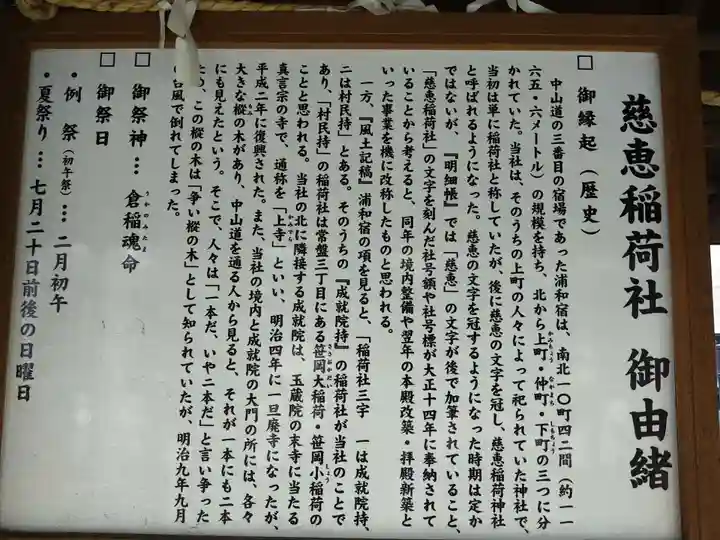 慈恵稲荷社　御由緒
□　御縁起（歴史）
中山道の三番目の宿場であった浦和宿は、南北一〇町四二間（約一一
六五・六メートル）の規模を持ち、北から上町・仲町・下町の三つに分
かれていた。当社は、そのうちの上町の人々によって祀られていた神社で、
当初は単に稲荷社と称していたが、後に慈恵の文字を冠し、慈恵稲荷神社
と呼ばれるようになった。慈恵の文字を冠するようになった時期は定か
ではないが、『明細帳』では「慈恵」の文字が後で加筆されていること、
「慈恵稲荷社」の文字を刻んだ社号額や社号標が大正十四年に奉納されて
いることから考えると、同年の境内整備や翌年の本殿改築・拝殿新築と
いった事業を機に改称したものと思われる。
一方、『風土記稿』浦和宿の項を見ると、「稲荷社三宇　一は成就院持、
二は村民持」とある。そのうちの『成就院持』の稲荷社が当社のことで
あり、「村民持」の稲荷社は常盤三丁目にある笹岡大稲荷・笹岡小稲荷の
ことと思われる。当社の北に隣接する成就院は、玉蔵院の末寺に当たる
真言宗の寺で、通称を「上寺」といい、明治四年に一旦廃寺になったが、
平成二年に復興された。また、当社の境内と成就院の大門の所には、各々
大きな樅の木があり、中山道を通る人から見ると、それが一本にも二本
にも見えたという。そこで、人々は「一本だ、いや二本だ」と言い争った
ため、この樅の木は「争い樅の木」として知られていたが、明治九年九月
の台風で倒れてしまった。
□　御祭神…　倉稲魂命
□　御祭日
・例　祭（初午祭）…　二月初午
・夏祭り…　七月二十日前後の日曜日